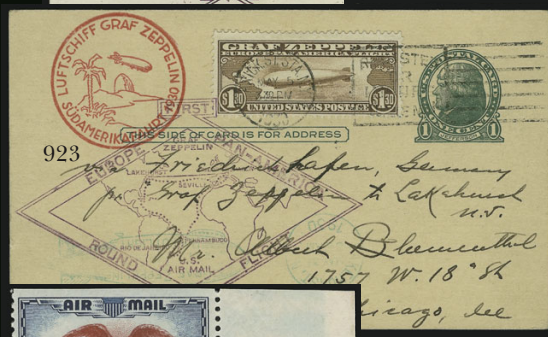 LUFTSCHIFF GRAF ZEPPELIN
SÜDAMERIKAFAHRT 1930
GRAF ZEPPELIN
$1.30 UNITED STATES POSTAGE $1.30
1 ONE CENT 1
JEFFERSON
THIS SIDE OF CARD IS FOR ADDRESS
923
FIRST
EUROPE PAN-AMERICA
ROUND FLIGHT
ZEPPELIN
LAKEHURST
SEVILLE
RIO DE JANEIRO
PERNAMBUCO
U.S.
AIR MAIL
via Friedrichshafen, Germany
pr Graf Zeppelin to Lakehurst
N.J.
Mr. Albert Blumenthal
1757 W. 18" St
Chicago, Ill
AIR MAIL